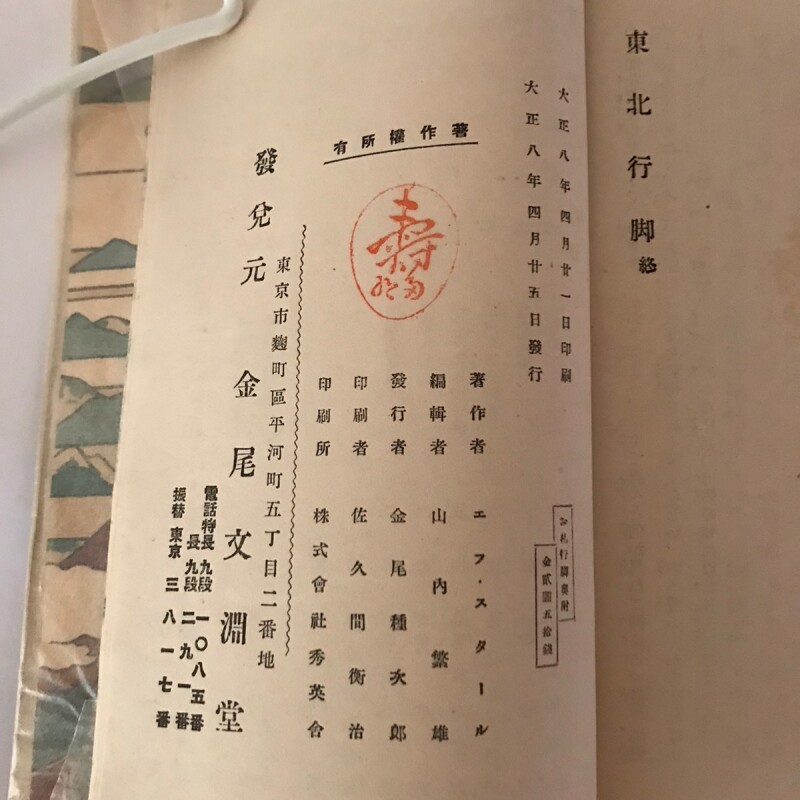 東北行脚 終
大正八年四月廿一日印刷
大正八年四月廿五日發行
金貳圓五拾錢
著作權所有
壽
著作者 エフ・スタール
編輯者 山內繁雄
發行者 金尾種次郎
印刷者 佐久間衡治
印刷所 株式會社秀英舍
東京市麴町區平河町五丁目二番地
發兌元 金尾文淵堂
電話特長九段一〇八五番
長九段二九一番
振替東京三八一七番